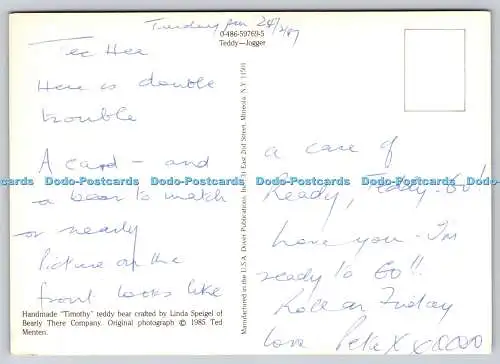 Tuesday pm 24/3/87
0-486-59769-5
Teddy—Jogger
Tee Hee
Here is double
trouble
A card - and
a bear to match
- or nearly
Picture on the
front looks like
a case of
Ready, Teddy - Go!
love you - I'm
ready to Go!!
Roll on Friday
love Pete X x oooo
Handmade "Timothy" teddy bear crafted by Linda Speigel of
Bearly There Company. Original photograph © 1985 Ted
Menten.
Manufactured in the U.S.A. Dover Publications, Inc., 31 East 2nd Street, Mineola, N.Y. 11501
Dodo-Postcards Dodo-Postcards Dodo-Postcards Dodo-Postcards